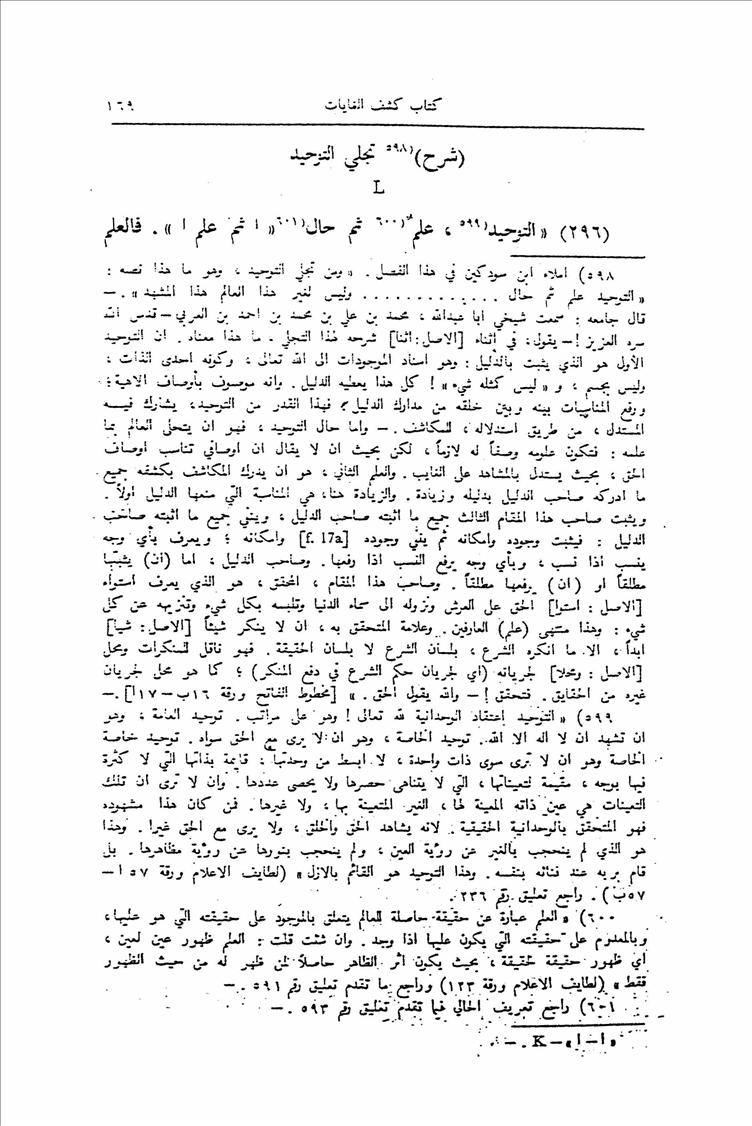 كتاب كشف الغايات ١٦٩
(شرح)٥٩٨) تجلي التوحيد
L
(٢٩٦) « التوحيد٥٩٩) ، علم*٦٠٠) ثم حال٦٠١)« ا ثم علم ا » . فالعلم
٥٩٨) املاء ابن سودكين في هذا الفصل . « ومن تجلي التوحيد ، وهو ما هذا نصه :
« التوحيد علم ثم حال .............. وليس لغير هذا العالم هذا المشهد » . –
قال جامعه : سمعت شيخي أبا عبدالله ، محمد بن علي بن محمد بن احمد بن العربي – قدس الله
سره العزيز ! – يقول ، في أثناء [الاصل: اثنا] شرحه لهذا التجلي . ما هذا معناه . ان التوحيد
الأول هو الذي يثبت بالدليل : وهو اسناد الموجودات الى الله تعالى ، وكونه احدى الذات ،
وليس بجسم ، و « ليس كمثله شيء » ! كل هذا يعطيه الدليل . وانه موصوف بأوصاف الالهية ؛
ورفع المناسبات بينه وبين خلقه من مدارك الدليل ؛ فهذا القدر من التوحيد، يشارك فيه
المستدل ، من طريق استدلاله ، للمكاشف . – واما حال التوحيد ، فهو ان يتحلى العالم بما
علمه : فتكون علومه وصفاً له لازماً ، لكن بحيث ان لا يقال ان اوصافي تناسب أوصاف
الحق ، بحيث يستدل بالشاهد على الغايب . والعلم الثاني ، هو ان يدرك المكاشف بكشفه جميع
ما ادركه صاحب الدليل بدليله وزيادة . والزيادة هنا، هي المناسبة التي منعها الدليل اولاً .
ويثبت صاحب هذا المقام الثالث جميع ما اثبته صاحب الدليل ، وينفي جميع ما اثبته صاحب
الدليل : فيثبت وجوده وامكانه ثم ينفي وجوده [f. 17a] وامكانه ؛ ويعرف بأي وجه
ينسب اذا نسب ، وبأي وجه يرفع النسب اذا رفعها . وصاحب الدليل ، اما (أن) يثبتها
مطلقاً او (ان) يرفعها مطلقاً . وصاحب هذا المقام ، المحقق ، هو الذي يعرف استواء
[الاصل : استوا] الحق على العرش ونزوله الى سماء الدنيا وتلبسه بكل شيء وتنزيهه عن كل
شيء : وهذا منتهى (علم) العارفين . وعلامة المتحقق به ، ان لا ينكر شيئاً [الاصل : شيا]
ابداً ، الا ما انكره الشرع ، بلسان الشرع لا بلسان الحقيقة . فهو ناقل للمنكرات ومحل
[الاصل : ومحلا] لجرياته (أي لجريان حكم الشرع في دفع المنكر) ؛ كما هو محل لجريان
غيره من الحقايق . فتحقق ! – والله يقول الحق . » [مخطوط الفاتح ورقة ١٦ب – ١٧ا] . –
٥٩٩) « التوحيد إعتقاد الوحدانية لله تعالى ! وهو على مراتب . توحيد العامة ، وهو
ان تشهد ان لا اله الا الله . توحيد الخاصة ، وهو ان لا يرى مع الحق سواه . توحيد خاصة
الخاصة وهو ان لا ترى سوى ذات واحدة ، لا ابسط من وحدتها ؛ قايمة بذاتها التي لا كثرة
فيها بوجه ، مقيمة لتعيناتها ، التي لا يتناهى حصرها ولا يحصى عددها . وان لا ترى ان تلك
التعينات هي عين ذاته المعينة لها ، الغير المتعينة بها ، ولا غيرها . فمن كان هذا مشهوده
فهو المتحقق بالوحدانية الحقيقية . لانه يشاهد الحق والخلق ، ولا يرى مع الحق غيرا. وهذا
هو الذي لم ينحجب بالغير عن رؤية العين ، ولم ينحجب بنورها عن رؤية مظاهرها . بل
قام بربه عند فنائه بنفسه . وهذا التوحيد هو القائم بالازل » (لطايف الاعلام ورقة ٥٧ ا –
٥٧ب) . راجع تعليق رقم ٢٣٦ .
٦٠٠) « العلم عبارة عن حقيقة حاصلة للعالم يتعلق بالموجود على حقيقته التي هو عليها ،
وبالمعدوم على حقيقته التي يكون عليها اذا وجد . وان شئت قلت : العلم ظهور عين لعين ،
أي ظهور حقيقة لحقيقة ، بحيث يكون اثر الظاهر حاصلاً لمن ظهر له من حيث الظهور
فقط » (لطايف الاعلام ورقة ١٢٣) وراجع ما تقدم تعليق رقم ٥٩١ . –
٦٠١) راجع تعريف الحالي فيما تقدم تعليق رقم ٥٩٣ . –
« ا – ا » – K . –